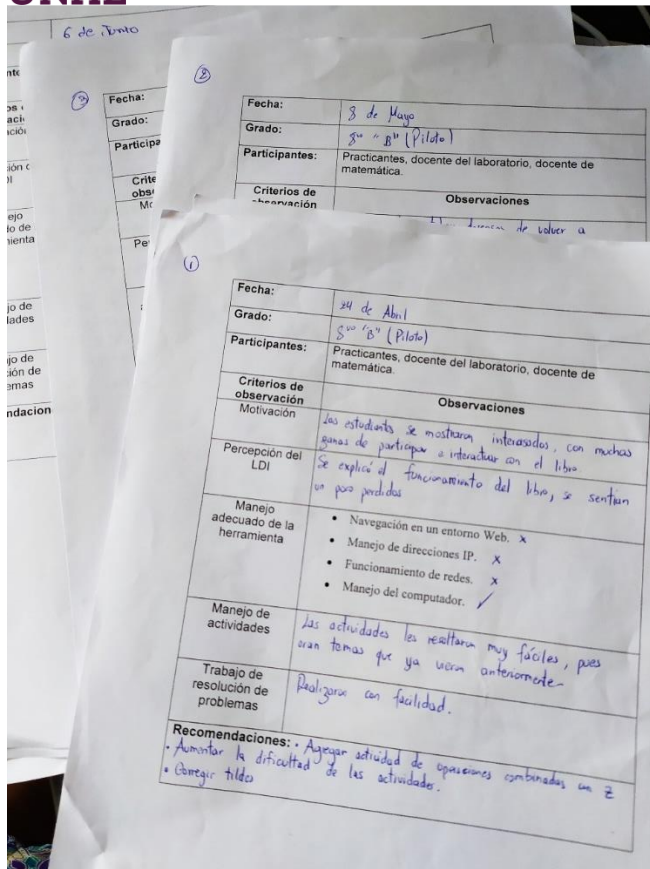 6 de Junio
②
Fecha: 8 de Mayo
Grado: 8vo "B" (Piloto)
Participantes: Practicantes, docente del laboratorio, docente de
matemática.
Criterios de
observación
Observaciones
de volver a
③
Fecha:
Grado:
Participa
Crite
obse
Mo
Pe
①
Fecha: 24 de Abril
Grado: 8vo "B" (Piloto)
Participantes: Practicantes, docente del laboratorio, docente de
matemática.
Criterios de
observación
Observaciones
Motivación
Los estudiantes se mostraron interesados, con muchas
ganas de participar e interactuar con el libro
Percepción del
LDI
Se explicó el funcionamiento del libro, se sentían
un poco perdidos
Manejo
adecuado de la
herramienta
• Navegación en un entorno Web. x
• Manejo de direcciones IP. x
• Funcionamiento de redes. x
• Manejo del computador. ✓
Manejo de
actividades
Las actividades les resultaron muy fáciles, pues
eran temas que ya vieron anteriormente
Trabajo de
resolución de
problemas
Realizaron con facilidad.
Recomendaciones: • Agregar actividad de operaciones combinadas con Z
• Aumentar la dificultad de las actividades.
• Corregir tildes